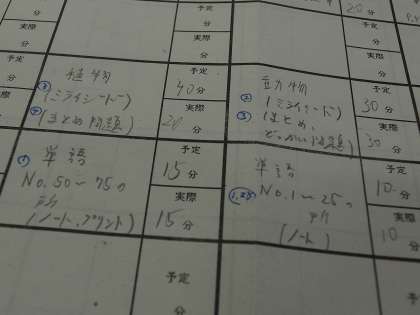 分
予定
分
20分
予定
分
実際
分
実際
分
実際
分
予定
分
植物
(ミライシード)
(まとめ問題)
予定
40分
実際
20分
② (ミライシード)
③ (まとめ、
予定
30分
実際
30分
① 単語
No.50〜75の
(ノート、プリント)
予定
15分
実際
15分
単語
No.1〜25の
(ノート)
予定
10分
実際
10分
予定
分
予
分